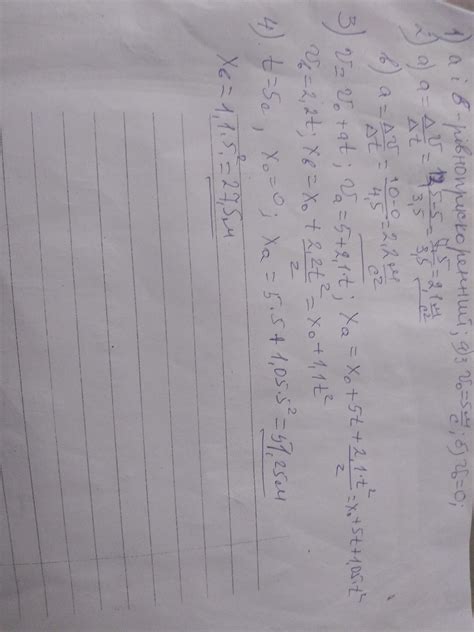 1) а і в - рівноприскорений; а) v₀=5 м/с; б) v₀=0;
2) а) a = Δv/Δt = 12,5-5/3,5 = 7,5/3,5 = 2,1 м/с²
в) a = Δv/Δt = 10-0/4,5 = 2,2 м/с²
3) v = v₀ + at; vа = 5+2,1t; xа = x₀ + 5t + 2,1·t²/2 = x₀ + 5t + 1,05·t²
vв = 2,2t; xв = x₀ + 2,2t²/2 = x₀ + 1,1t²
4). t = 5с, x₀ = 0; xа = 5·5 + 1,05·5² = 51,25 м
xв = 1,1·5² = 27,5 м